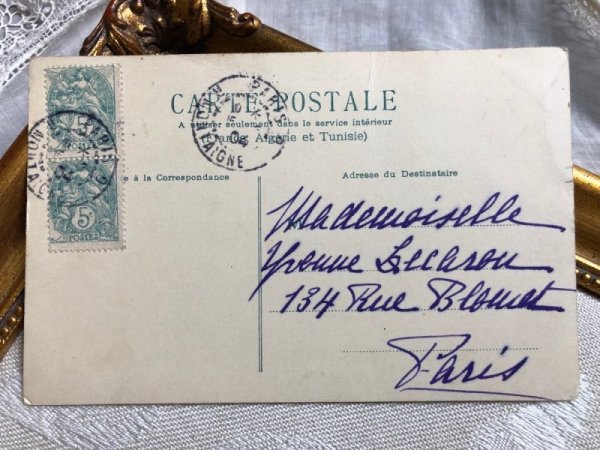 CARTE POSTALE
A utiliser seulement dans le service intérieur
France, Algérie et Tunisie)
e à la Correspondance
Adresse du Destinataire
Mademoiselle
Yvonne Lecaron
134 Rue Blomet
Paris
5c
POSTES
PARIS